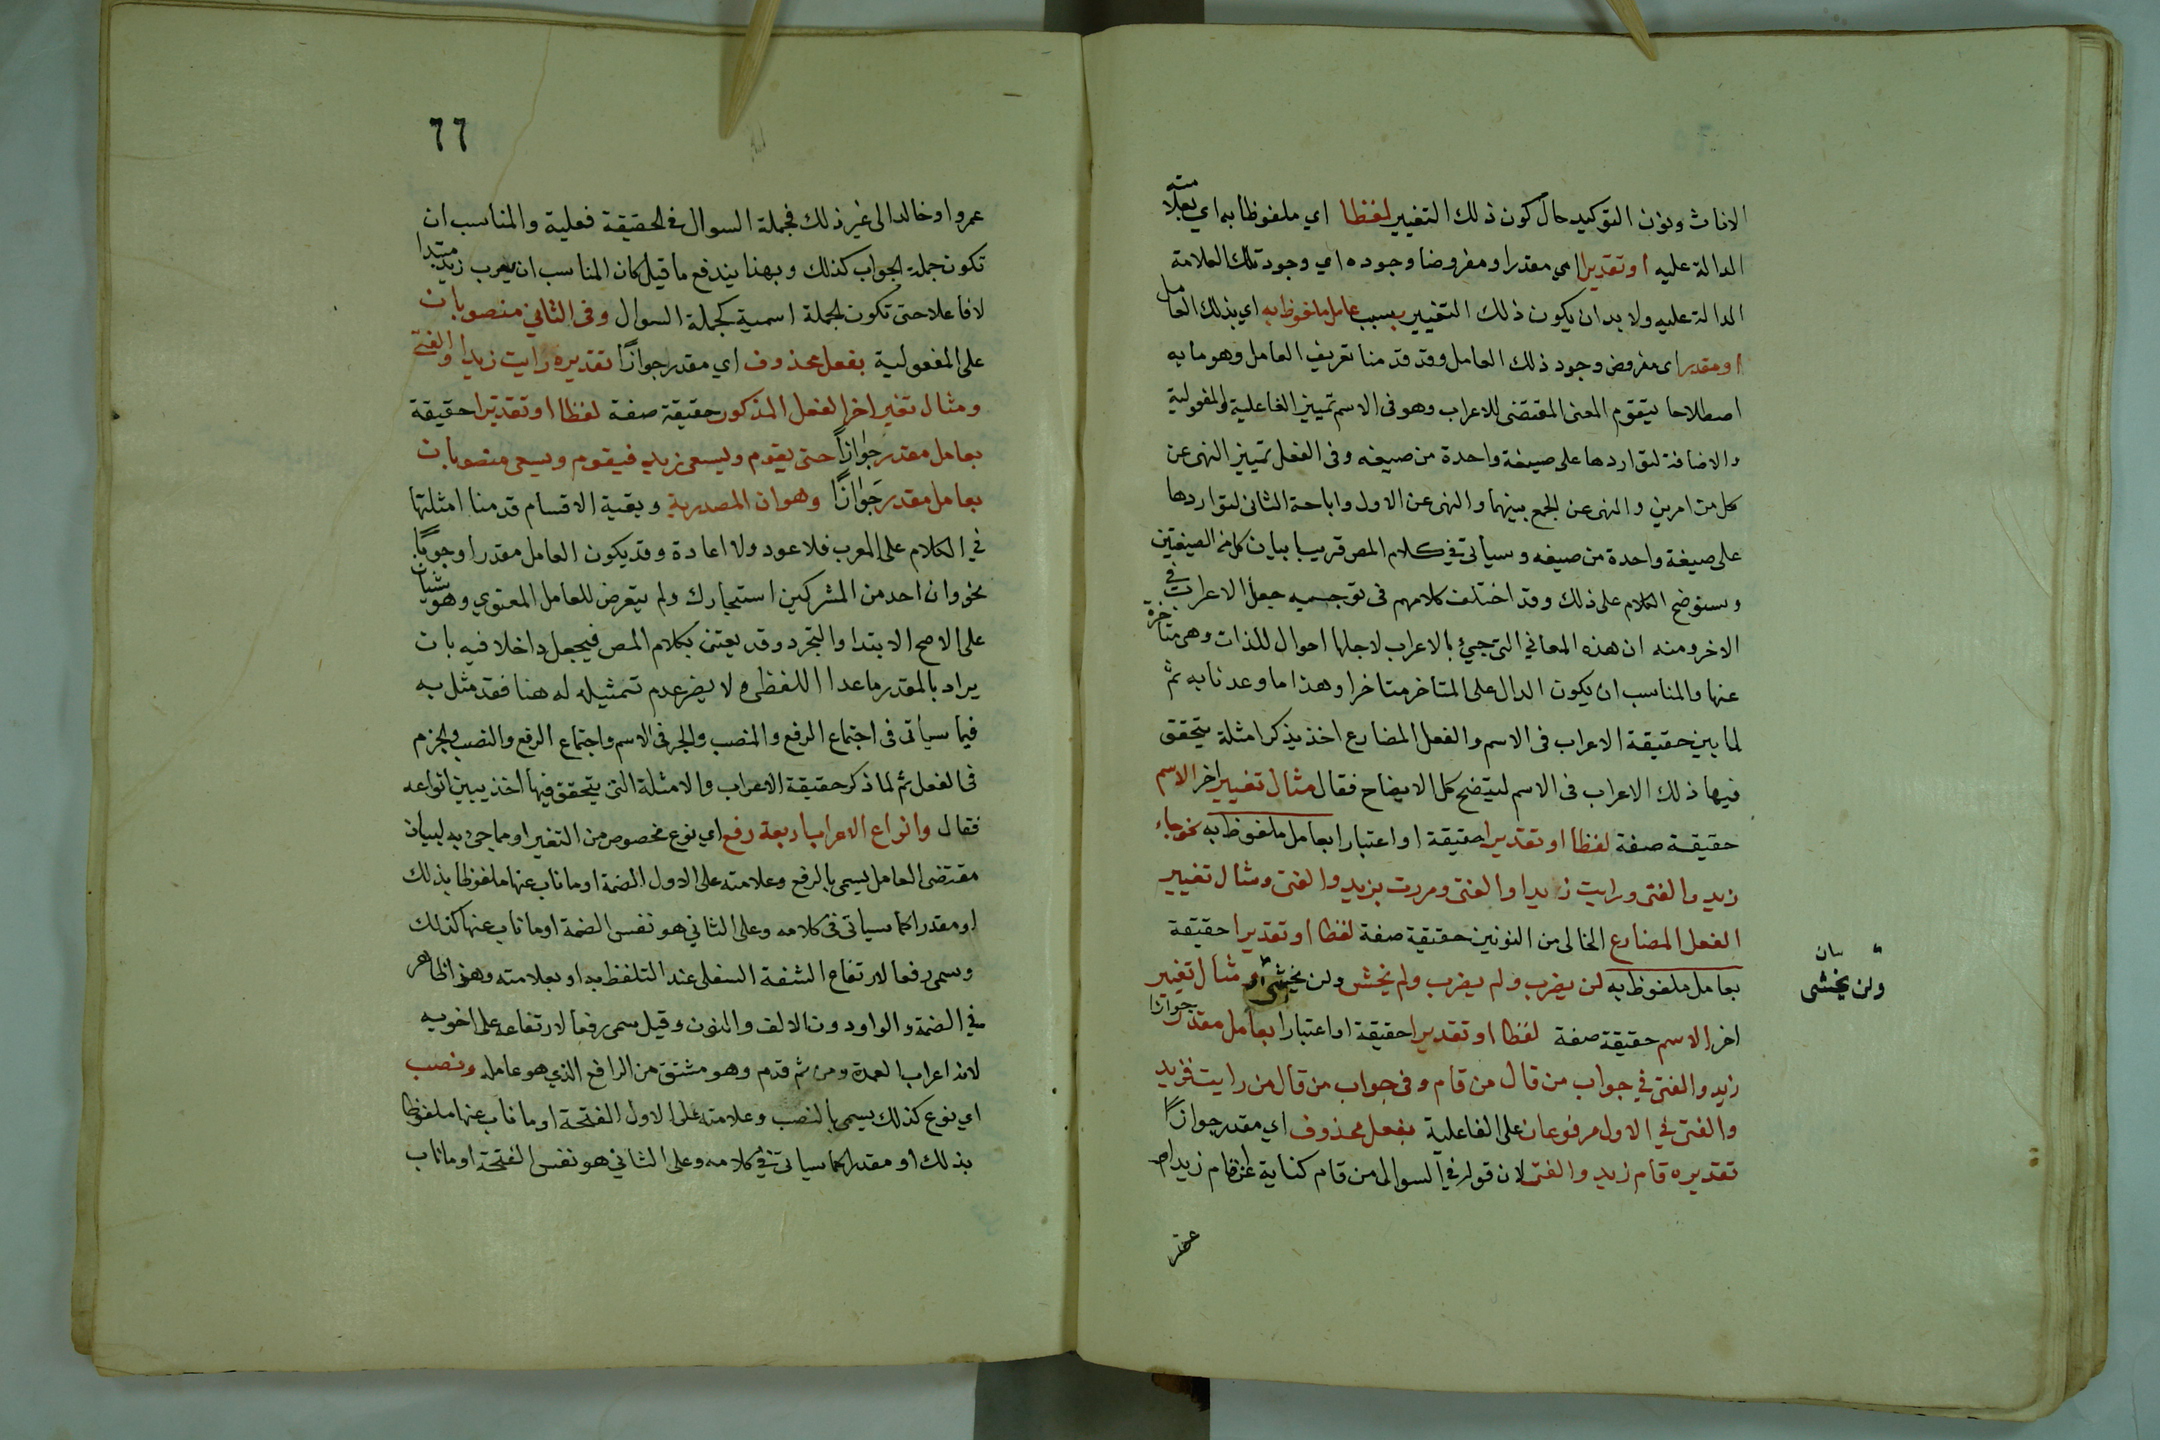 الاناث ونون التوكيد حال كون ذلك التغيير لفظا اي ملفوظا به اي بعلامته
الدالة عليه او تقديرا اي مقدرا ومفروضا وجوده اي وجود تلك العلامة
الدالة عليه ولا بد ان يكون ذلك التغيير بسبب عامل ملفوظ به اي بذلك العامل
او مقدر اى مفروض وجود ذلك العامل وقد قدمنا تعريف العامل وهو ما به
اصطلاحا يتقوم المعنى المقتضى للاعراب وهو فى الاسم تمييز الفاعلية والمفعولية
والاضافة لتواردها على صيغة واحدة من صيغه وفى الفعل تمييز النهى عن
كل من امرين والنهى عن الجمع بينهما والنهى عن الاول واباحة الثانى لتواردها
على صيغة واحدة من صيغه وسيأتى في كلام المص قريبا بيان كل من الصيغتين
وسنوضح الكلام على ذلك وقد اختلف كلامهم فى توجيه جعل الاعراب في
الاخر ومنه ان هذه المعاني التى جيئ بالاعراب لاجلها احوال للذات وهى متاخرة
عنها والمناسب ان يكون الدال على المتاخر متاخرا وهذا ما وعدنا به ثم
لما بين حقيقة الاعراب فى الاسم والفعل المضارع اخذ يذكر امثلة يتحقق
فيها ذلك الاعراب فى الاسم ليتضح كل الايضاح فقال مثال تغيير اخر الاسم
حقيقة صفة لفظا او تقديرا حقيقة او اعتبارا بعامل ملفوظ به نحو جاء
زيد والفتى ورايت زيدا والفتى ومررت بزيد والفتى ومثال تغيير
الفعل المضارع الخالى من النونين حقيقة صفة لفظا او تقديرا حقيقة
بعامل ملفوظ به لن يضرب ولم يضرب ولم يخش ولن يخشى ومثال تغيير
ولن يخشى
اخر الاسم حقيقة صفة لفظا او تقديرا حقيقة او اعتبارا بعامل مقدر جوازا
زيد والفتى في جواب من قال من قام وفى جواب من قال من رايت فزيد
والفتى في الاول مرفوعان على الفاعلية بفعل محذوف اي مقدر جوازًا
تقديره قام زيد والفتى لان قوله في السوال من قام كناية عن قام زيد ام
عمرو
٦٦
عمروا وخالد الى غير ذلك فجملة السوال فى الحقيقة فعلية والمناسب ان
تكون جملة الجواب كذلك وبهذا يندفع ما قيل كان المناسب ان يعرب زيد مبتدا
لا فاعلا حتى تكون الجملة اسمية كجملة السوال وفى الثاني منصوبان
على المفعولية بفعل محذوف اي مقدر جوازًا تقديره رايت زيدا والفتى
ومثال تغير اخر الفعل المذكور حقيقة صفة لفظا او تقديرا حقيقة
بعامل مقدر جوازًا حتى يقوم ويسعى زيد فيقوم ويسعى منصوبان
بعامل مقدر جَوازًا وهو ان المصدرية وبقية الاقسام قدمنا امثلتها
في الكلام على المعرب فلا عود ولا اعادة وقد يكون العامل مقدرا وجوبًا
نحو وان احد من المشركين استجارك ولم يتعرض للعامل المعنوي وهو شيان
على الاصح الابتدا والتجرد وقد يعتنى بكلام المص فيجعل داخلا فيه بان
يراد بالمقدر ما عدا اللفظى ولا يضر عدم تمثيله له هنا فقد مثل به
فيما سياتى فى اجتماع الرفع والنصب والجر فى الاسم واجتماع الرفع والنصب والجزم
فى الفعل ثم لما ذكر حقيقة الاعراب والامثلة التى يتحقق فيها اخذ يبين انواعه
فقال وانواع الاعراب اربعة رفع اي نوع مخصوص من التغير او مما جيء به لبيان
مقتضى العامل يسمى بالرفع وعلامته على الاول الضمة او ما ناب عنها ملفوظا بذلك
او مقدرا كما سياتى فى كلامه وعلى الثاني هو نفس الضمة او ما ناب عنها كذلك
وسمى رفعا لارتفاع الشفة السفلى عند التلفظ به او بعلامته وهو ظاهر
في الضمة والواو دون الالف والنون وقيل سمى رفعا لارتفاعه على اخويه
لانه اعراب العمدة ومن ثم قدم وهو مشتق من الرافع الذي هو عامله ونصب
اي نوع كذلك يسمى بالنصب وعلامته على الاول الفتحة او ما ناب عنها ملفوظا
بذلك او مقدرا كما سياتى في كلامه وعلى الثاني هو نفس الفتحة او ما ناب